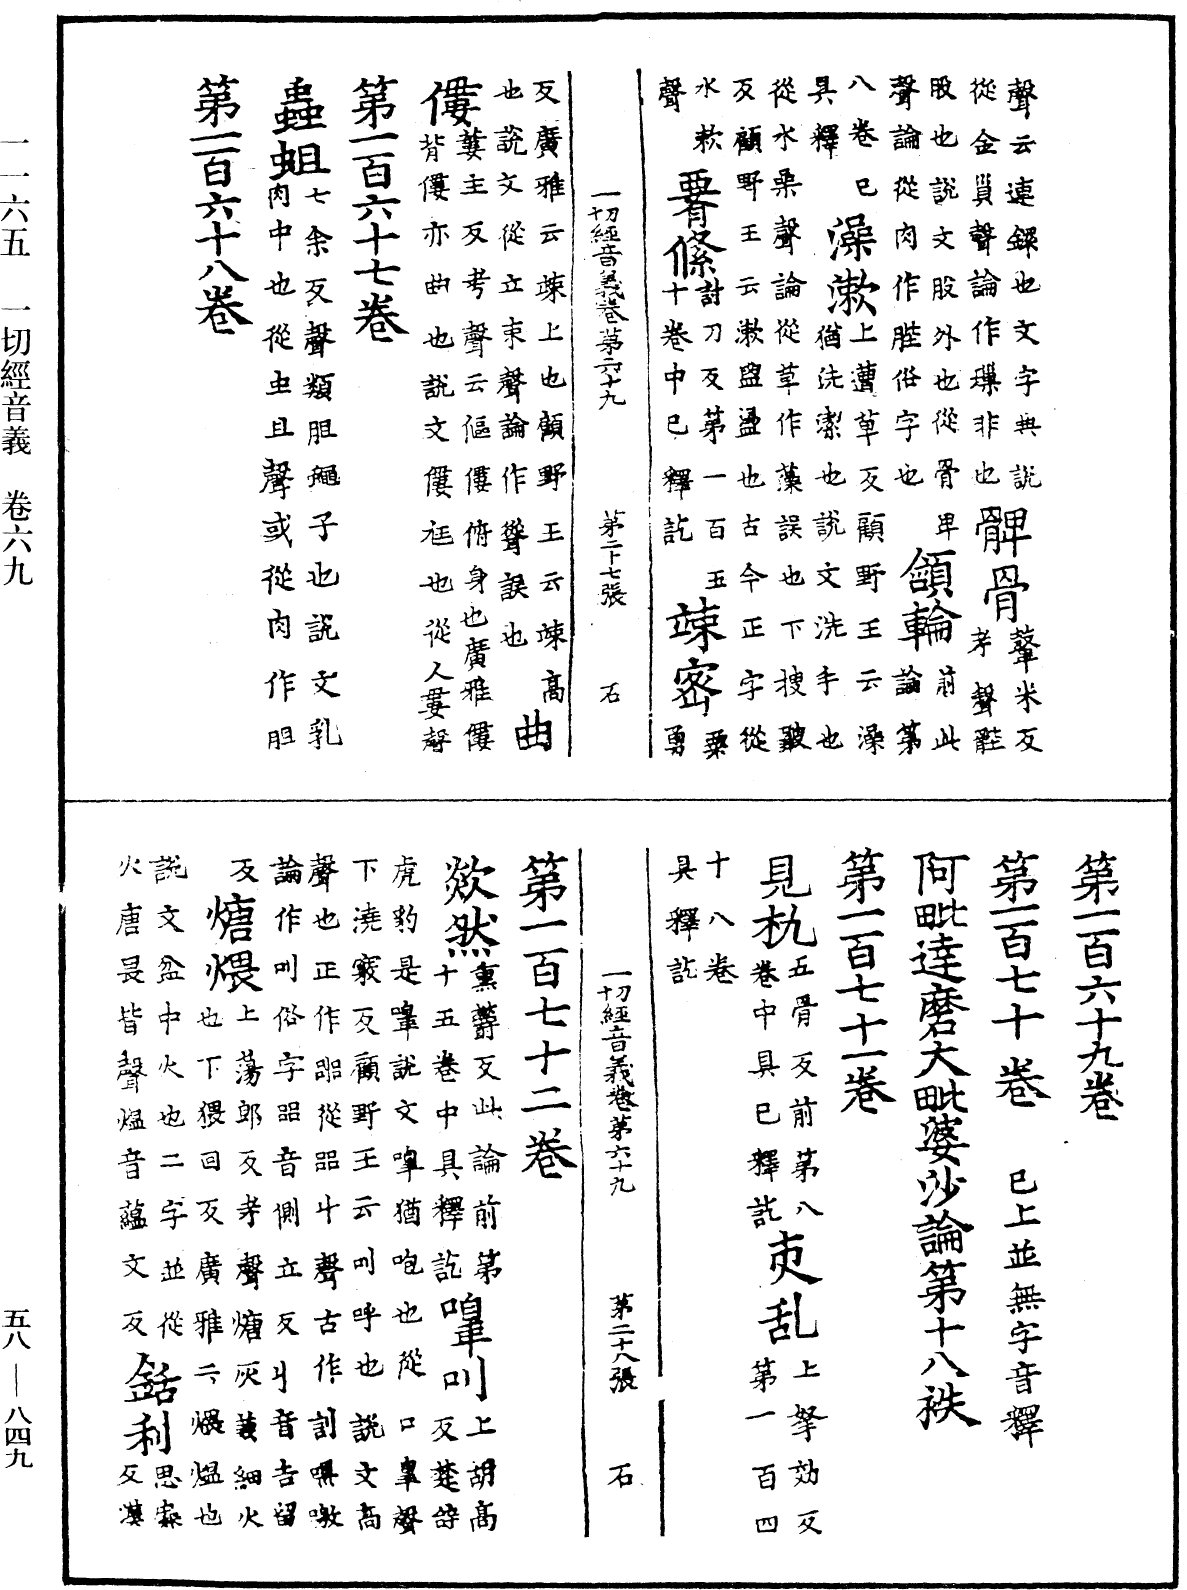 聲云連鏁也文字典說
從金𧴪聲論作璅非也
髀骨
鼙米反
考聲髀
股也說文股外也從骨卑
聲論從肉作䏶俗字也
頷輪
前此
論第
八卷已
具釋
澡漱
上遭草反顧野王云澡
猶洗潔也說文洗手也
從水喿聲論從草作藻誤也下搜皺
反顧野王云漱盥盪也古今正字從
水欶
聲
絛
討刀反第一百五
十卷中已釋訖
竦密
粟
勇
一切經音義卷第六十九 第二十七張 石
反廣雅云竦上也顧野王云竦高
也說文從立束聲論作聳誤也
曲
僂
蔞主反考聲云傴僂俯身也廣雅僂
背僂亦曲也說文僂尪也從人婁聲
第一百六十七卷
蟲蛆
七余反聲類胆蠅子也說文乳
肉中也從虫且聲或從肉作胆
第一百六十八卷
第一百六十九卷
第一百七十卷 已上並無字音釋
阿毗達磨大毗婆沙論第十八袟
第一百七十一卷
見杌
五骨反前第八
卷中具已釋訖
乱
上拏效反
第一百四
十八卷
具釋訖
一切經音義卷第六十九 第二十八張 石
第一百七十二卷
欻然
熏欝反此論前第
十五卷中具釋訖
嘷叫
上胡高
反楚辞
虎豹是嘷說文嘷猶咆也從口皐聲
下澆竅反顧野王云叫呼也說文高
聲也正作㗊從㗊丩聲古作訆嘂噭
論作叫俗字㗊音側立反丩音吉留
反
煻煨
上蕩郎反考聲煻灰細火
也下猥回反廣雅云煨煴也
說文盆中火也二字並從
火唐畏皆聲煴音蘊文反
銛利
思
反漢
一一六五 一切經音義 卷六九
五八—八四九